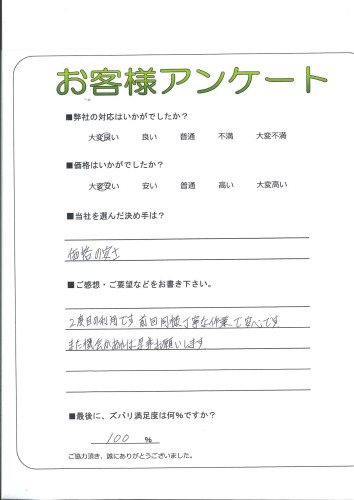 お客様アンケート
■弊社の対応はいかがでしたか？
大変良い 良い 普通 不満 大変不満
■価格はいかがでしたか？
大変安い 安い 普通 高い 大変高い
■当社を選んだ決め手は？
価格の安さ
■ご感想・ご要望などをお書き下さい。
2度目の利用です 前回同様丁寧な作業で
また機会があれば是非お願いします
■最後に、ズバリ満足度は何%ですか？
100 %
ご協力頂き、誠にありがとうございました。